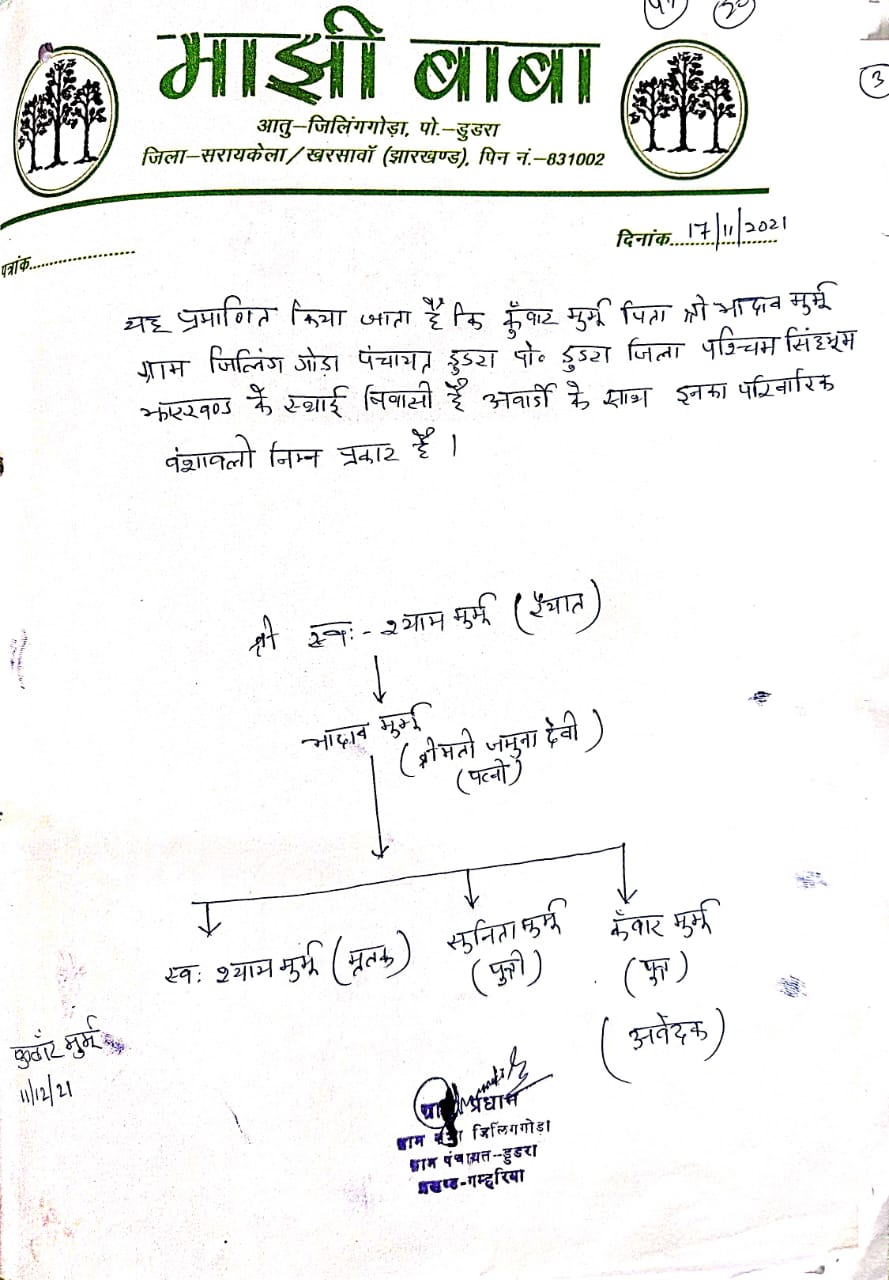 3
माझी बाबा
आतु-जिलिंगगोड़ा, पो.-डुडरा
जिला-सरायकेला/खरसावॉ (झारखण्ड), पिन नं.-831002
पत्रांक....................
दिनांक 17/11/2021
यह प्रमाणित किया जाता है कि कुँवार मुर्मू पिता श्री भादाव मुर्मू
ग्राम जिलिंग गोड़ा पंचायत डुडरा पो॰ डुडरा जिला पश्चिम सिंहभूम
झारखण्ड के स्थाई निवासी है अवार्डी के साथ इनका परिवारिक
वंशावली निम्न प्रकार है ।
श्री स्व:- श्याम मुर्मू (रैयात)
भादाव मुर्मू
(श्रीमती जमुना देवी)
(पत्नी)
स्व: श्याम मुर्मू (मृतक)
सुनिता मुर्मू
(पुत्री)
कुँवार मुर्मू
(पुत्र)
(आवेदक)
कुवाँर मुर्मू
11/12/21
ग्राम प्रधान
ग्राम सभा जिलिगगोड़ा
ग्राम पंचायत-डुडरा
प्रखण्ड-गम्हरिया